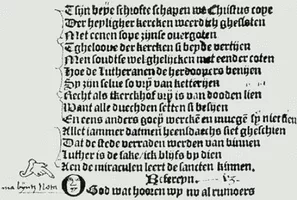 Tsijn beyde schrofte schapen we Christus cope
Der heyligher kercken weerdich ghesloten
Met eenen sope zijnse overgoten
Tgheloove der kercken si beyde vertijen
Men soudtse wel ghelijcken met eender coten
Hoe de Lutheranen de herdoopers benijen
Sy zijn selve so vrij van ketterijen
Recht als tkerckhof vrij is van dooden lien
Want alle duechden setten si besijen
En eens anders goey wercke en muegē sij niet sien
Allet iammer datmen heensdaechs siet gheschien
Dat de stede verraden werden van binnen
Luther is de sake/ ick blijfs bp dien
Aen de miraculen leert de sancten kinnen.
Refereyn.
O God wat hooren wy nv al rumoers